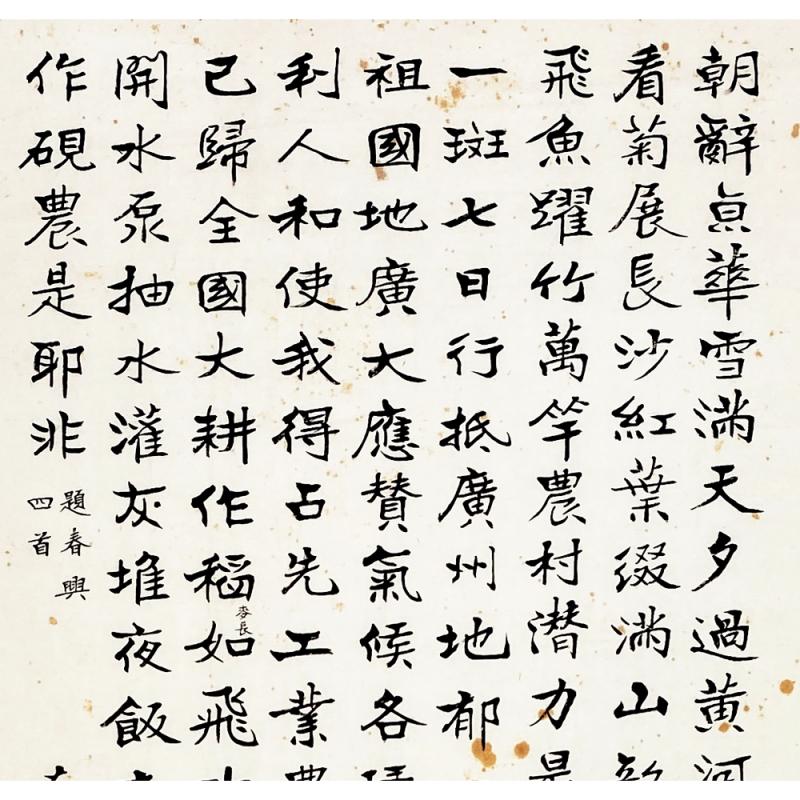 朝辭亰華雪滿天夕過黃河
看菊展長沙紅葉綴滿山
飛魚躍竹萬竿農村潛力是
一斑七日行抵廣州地郁
祖國地廣大應贊氣候各
利人和使我得占先工業農
已歸全國大耕作稻麥長如飛
開水泵抽水灌灰堆夜飯
作硯農是耶非
題春興
四首